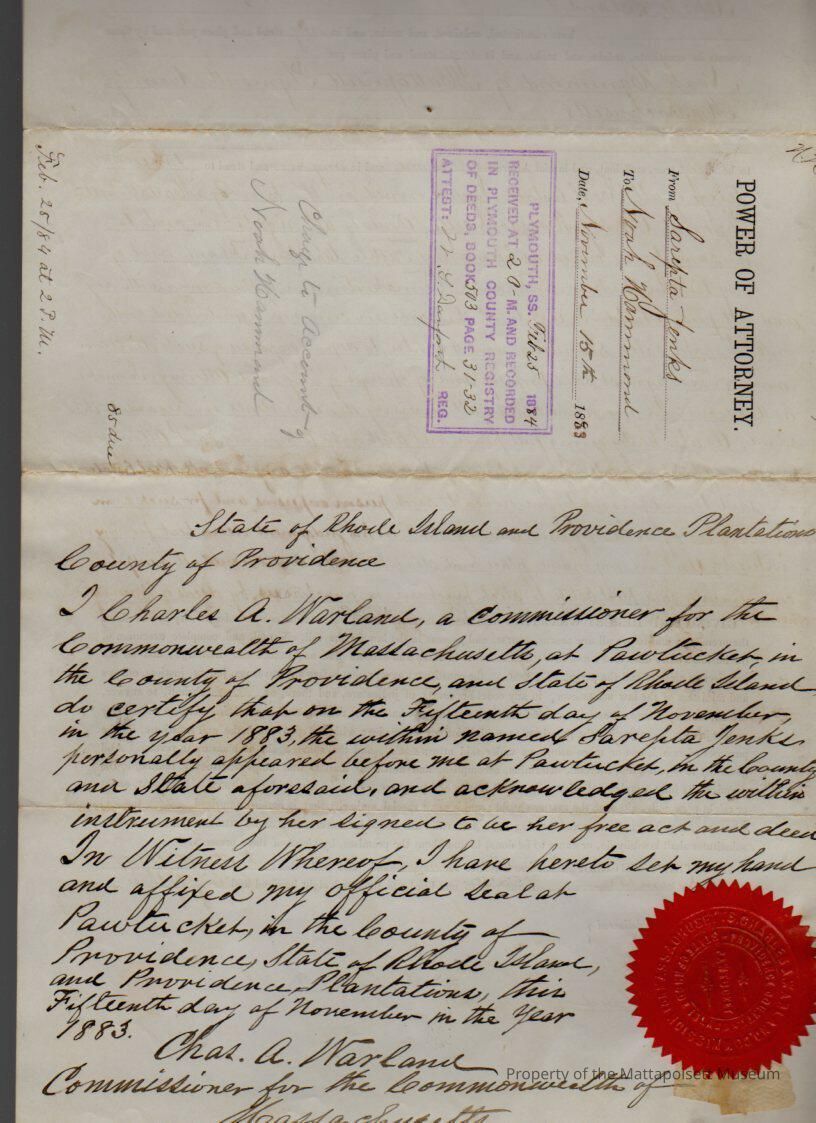 POWER OF ATTORNEY.
From Sarepta Jenks
To Noah Hammond
Date, November 15th 1883
PLYMOUTH, SS. Feb 25 1884
RECEIVED AT 2 P. M. AND RECORDED
IN PLYMOUTH COUNTY REGISTRY
OF DEEDS, BOOK 503 PAGE 31-32
ATTEST: REG.
Charge to Account of
Noah Hammond
85 due
Feb. 25/84 at 2 P.M.
State of Rhode Island and Providence Plantations
County of Providence
I Charles A. Warland, a commissioner for the
Commonwealth of Massachusetts, at Pawtucket, in
the County of Providence, and State of Rhode Island
do certify that on the Fifteenth day of November,
in the year 1883, the within named Sarepta Jenks
personally appeared before me at Pawtucket, in the County
and State aforesaid, and acknowledged the within
instrument by her signed to be her free act and deed
In Witness Whereof, I have hereto set my hand
and affixed my official seal at
Pawtucket, in the County of
Providence, State of Rhode Island,
and Providence Plantations, this
Fifteenth day of November in the Year
1883.
Chas. A. Warland
Commissioner for the Commonwealth of
Massachusetts
Property of the Mattapoisett Museum